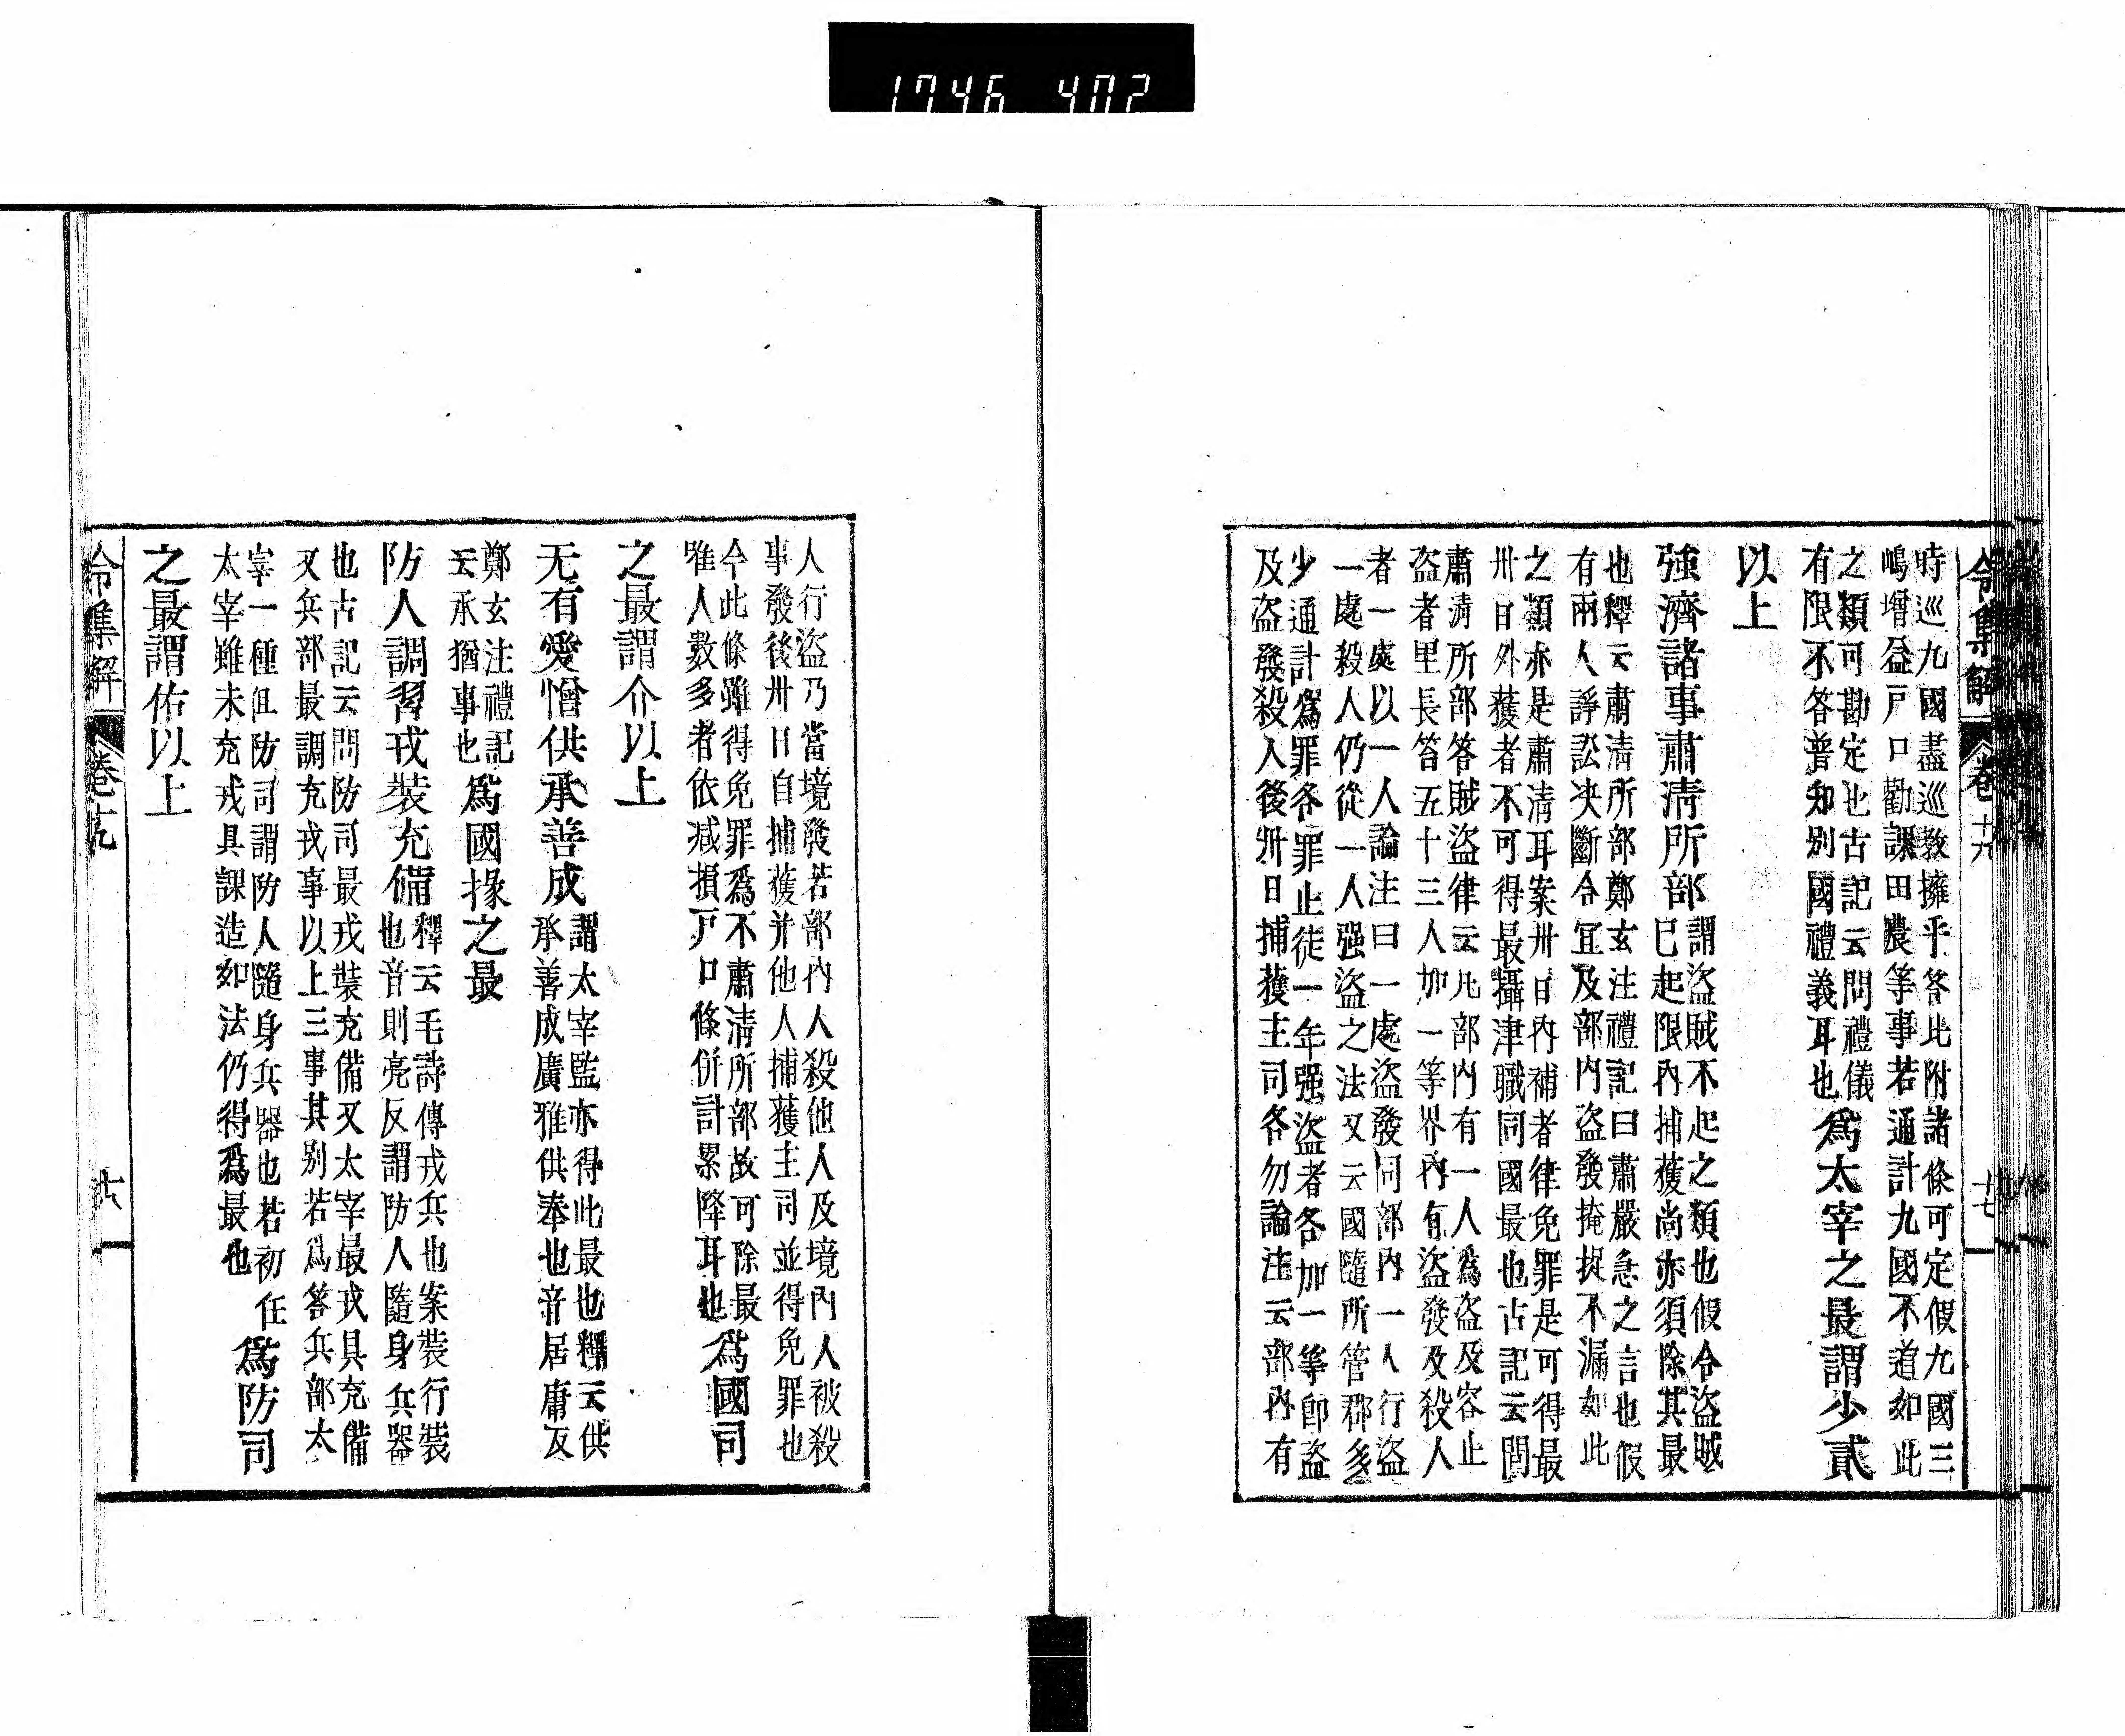 1746 402
令集解 卷十九 十七
時巡九國盡巡敎擁乎答比附諸條可定假九國三
嶋增益戸口勸課田農等事若通計九國不道如此
之類可勘定也古記云問禮儀
有限不答普知別國禮義耳也
爲太宰之最謂少貳
以上
強濟諸事肅淸所部
謂盜賊不起之類也假令盜賊
已起限內捕獲尚亦須除其最
也釋云肅淸所部鄭玄注禮記曰肅嚴急之言也假
有兩人諍訟決斷合宜及部內盜發掩捉不漏如此
之類亦是肅淸耳案卅日內補者律免罪是可得最
卅日外獲者不可得最攝津職同國最也古記云問
肅淸所部答賊盜律云凡部內有一人爲盜及容止
盜者里長笞五十三人加一等界內有盜發及殺人
者一處以一人論注曰一處盜發同部內一人行盜
一處殺人仍從一人强盜之法又云國隨所管郡多
少通計爲罪各罪止徒一年强盜者各加一等卽盜
及盜發殺人後卅日捕獲主司各勿論注云部內有
人行盜乃當境發若部內人殺他人及境內人被殺
事發後卅日自捕獲并他人捕獲主司並得免罪也
今此條雖得免罪爲不肅淸所部故可除最
唯人數多者依減損戸口條併計累降耳也
爲國司
之最謂介以上
无有愛憎供承善成
謂太宰監亦得此最也釋云供
承善成廣雅供奉也音居庸反
鄭玄注禮記
云承猶事也
爲國掾之最
防人調習戎裝充備
釋云毛詩傳戎兵也案裝行裝
也音則亮反謂防人隨身兵器
也古記云問防司最戎裝充備又太宰最戎具充備
又兵部最調充戎事以上三事其別若爲答兵部太
宰一種但防司謂防人隨身兵器也若初任
太宰雖未充戎具課造如法仍得爲最也
爲防司
之最謂佑以上
令集解 卷十九 十八